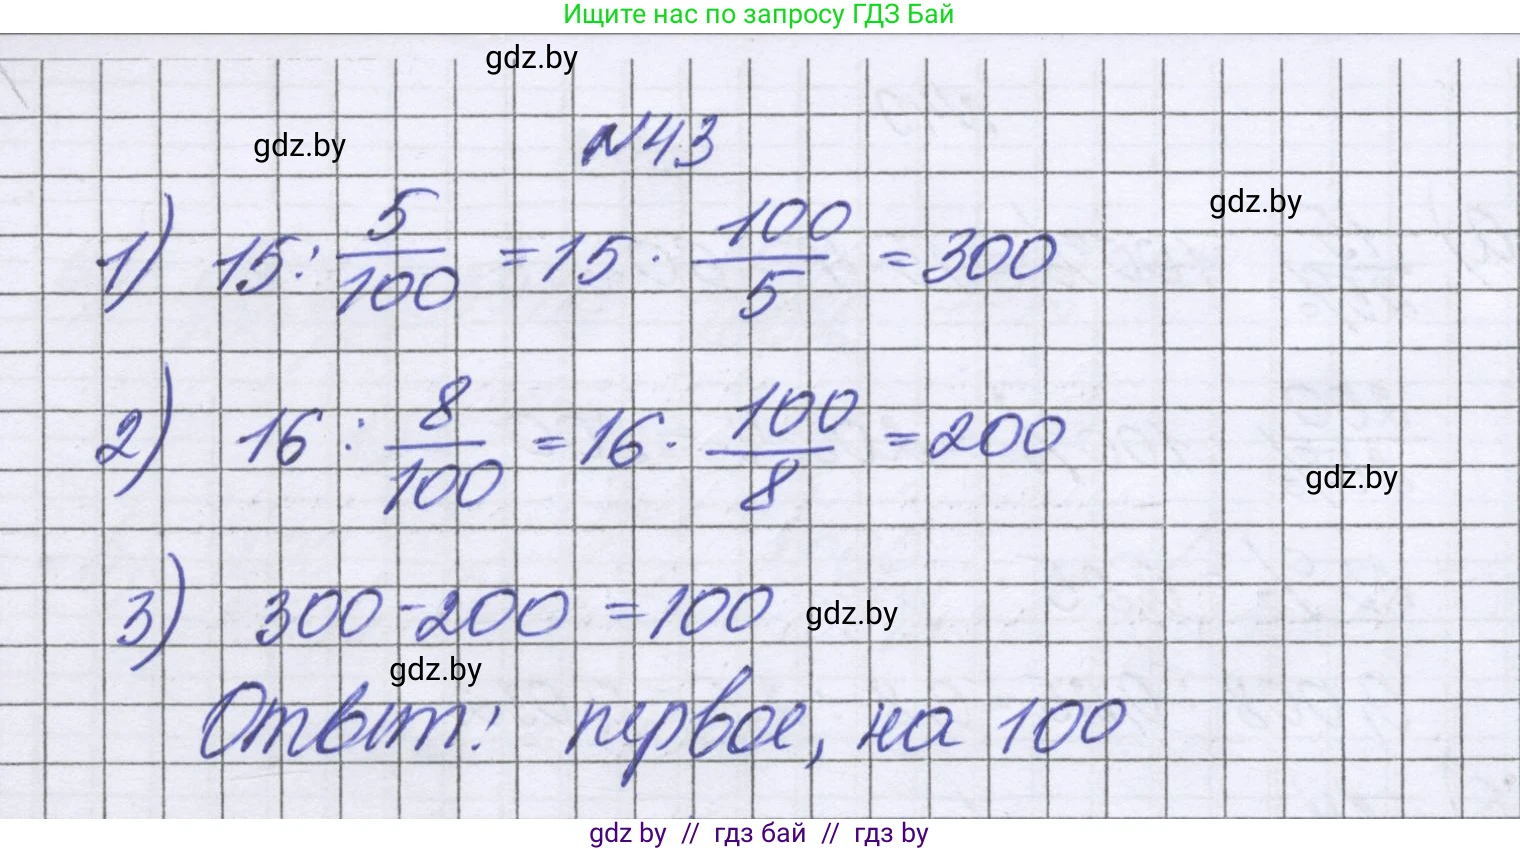 Ищите нас по запросу ГДЗ Бай
gdz.by
gdz.by
№43
gdz.by
1) 15 : 5/100 = 15 · 100/5 = 300
2) 16 : 8/100 = 16 · 100/8 = 200
gdz.by
3) 300 - 200 = 100
gdz.by
gdz.by
Ответ: первое, на 100
gdz by // гдз бай // гдз by